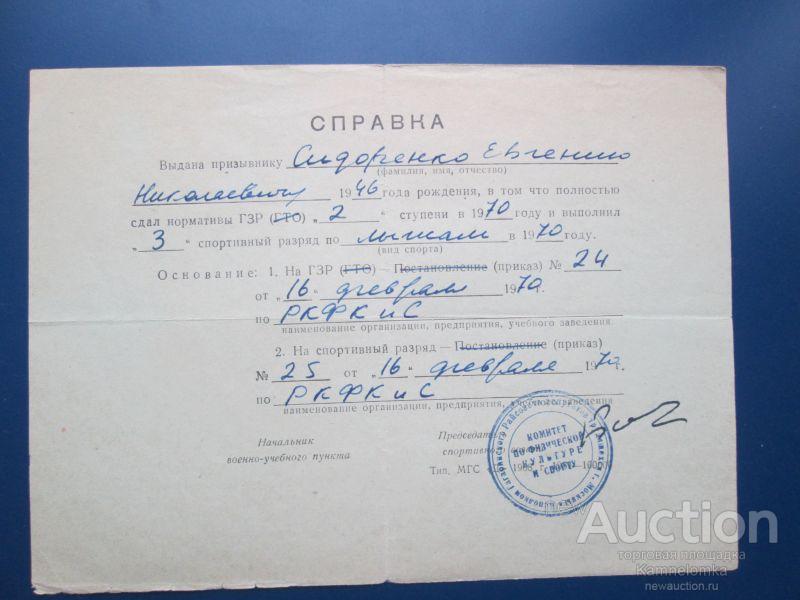 СПРАВКА
Выдана призывнику Сидоренко Евгению
(фамилия, имя, отчество)
Николаевичу 1946 года рождения, в том что полностью
сдал нормативы ГЗР (ГТО) „2“ ступени в 1970 году и выполнил
„3“ спортивный разряд по лыжам в 1970 году.
(вид спорта)
Основание: 1. На ГЗР (ГТО) — Постановление (приказ) № 24
от „16“ февраля 1970 г.
по РКФК и С
наименование организации, предприятия, учебного заведения.
2. На спортивный разряд — Постановление (приказ)
№ 25 от „16“ февраля 1970 г.
по РКФК и С
наименование организации, предприятия,
Начальник
военно-учебного пункта
Председатель
спортивной
Тип. МГС
КОМИТЕТ
ПО ФИЗИЧЕСКОЙ
КУЛЬТУРЕ
И СПОРТУ
Auction
торговая площадка
Kamnelomka
newauction.ru